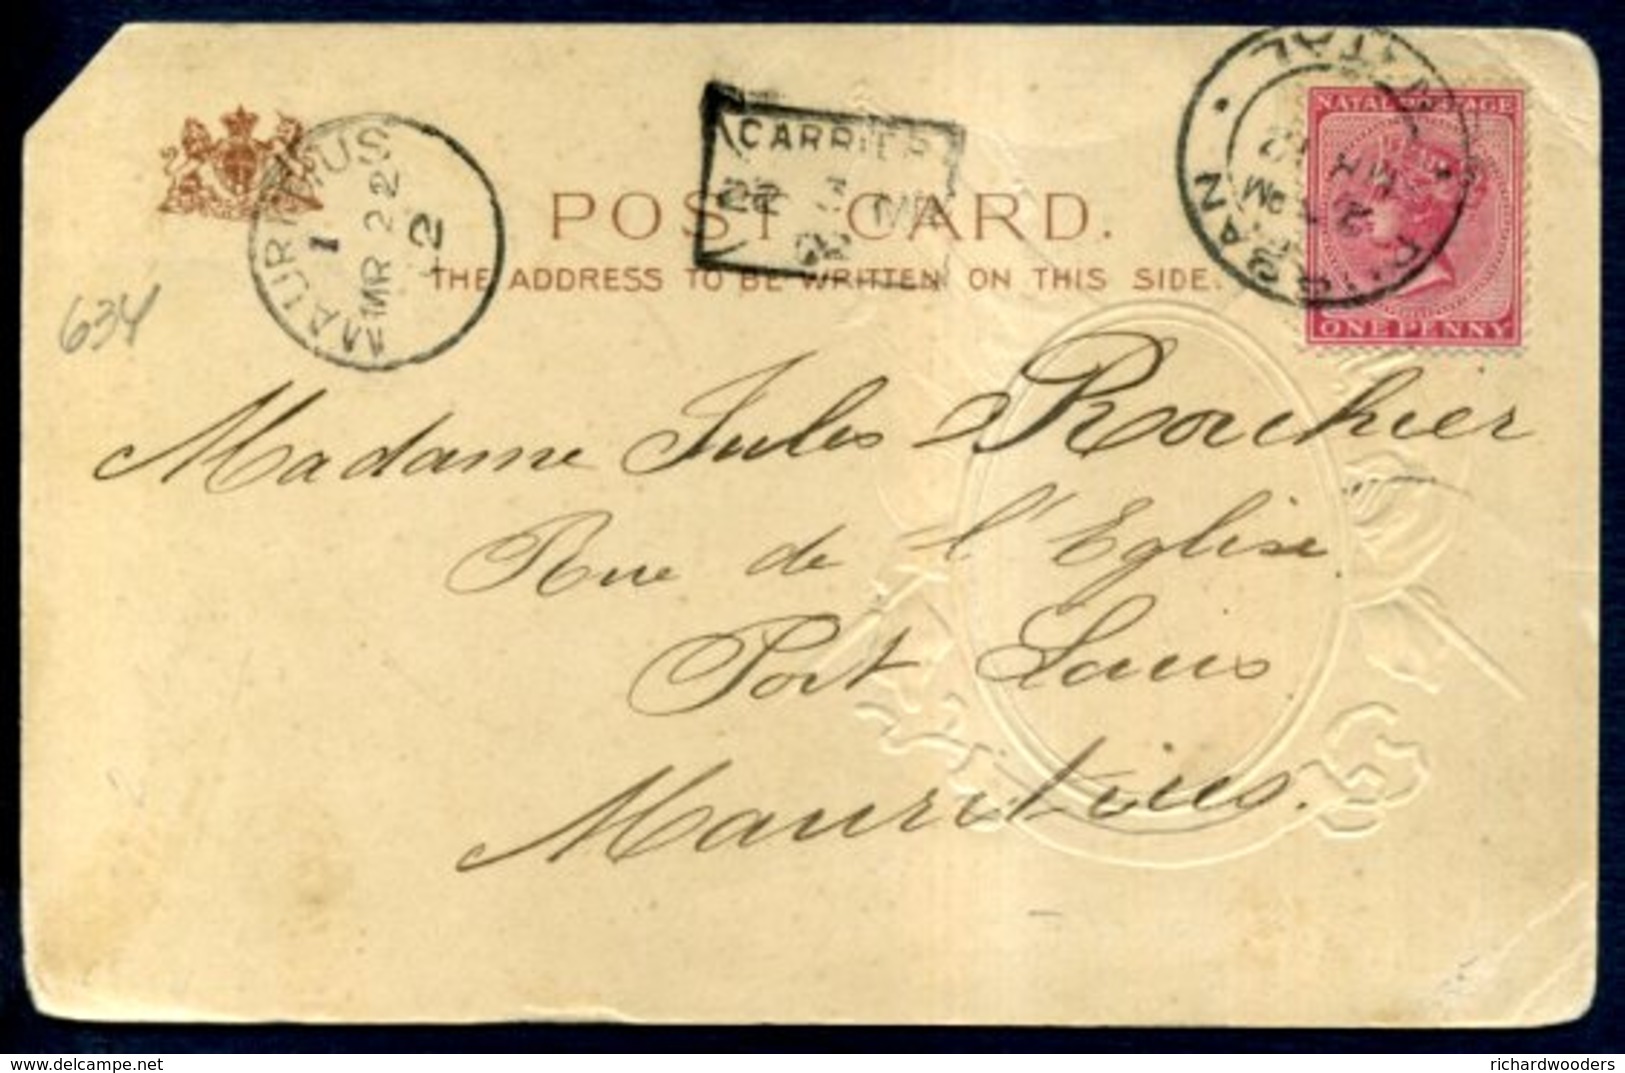 NATAL
DURBAN
NATAL POSTAGE
ONE PENNY
CARRIER
22
MAURITIUS
1
MR 22
2
POST CARD.
THE ADDRESS TO BE WRITTEN ON THIS SIDE.
634
Madame Jules Rouhier
Rue de l'Eglise
Port Louis
Mauritius.
richardwooders